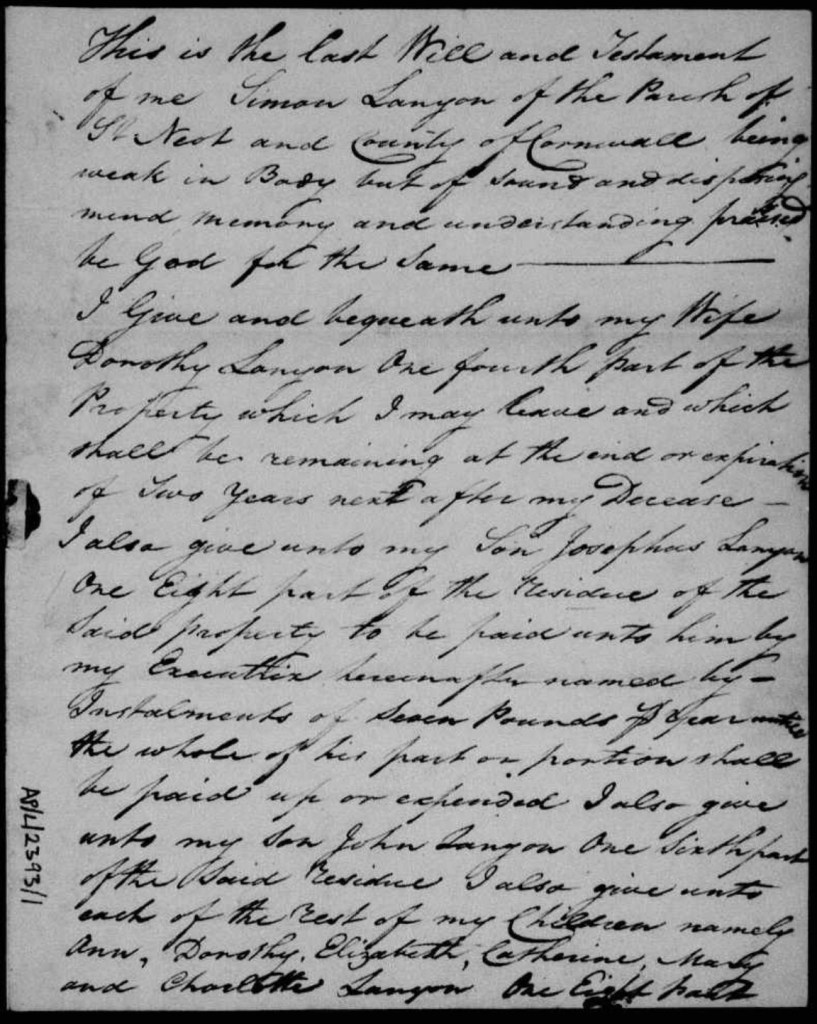 This is the last Will and Testament
of me Simon Lanyon of the Parish of
St Neot and County of Cornwall being
weak in Body but of Sound and disposing
mind memory and understanding praised
be God for the Same
I Give and bequeath unto my Wife
Dorothy Lanyon One fourth part of the
Property which I may leave and which
shall be remaining at the end or expiration
of Two Years next after my Decease
I also give unto my Son Josephus Lanyon
One Eight part of the Residue of the
Said property to be paid unto him by
my Executrix hereinafter named by
Instalments of Seven Pounds Pr Year untill
the whole of his part or portion shall
be paid up or expended I also give
unto my Son John Lanyon One Sixth part
of the Said Residue I also give unto
each of the rest of my Children namely
Ann, Dorothy, Elizabeth, Catherine, Mary
and Charlotte Lanyon One Eight part
AP/L/2393/1